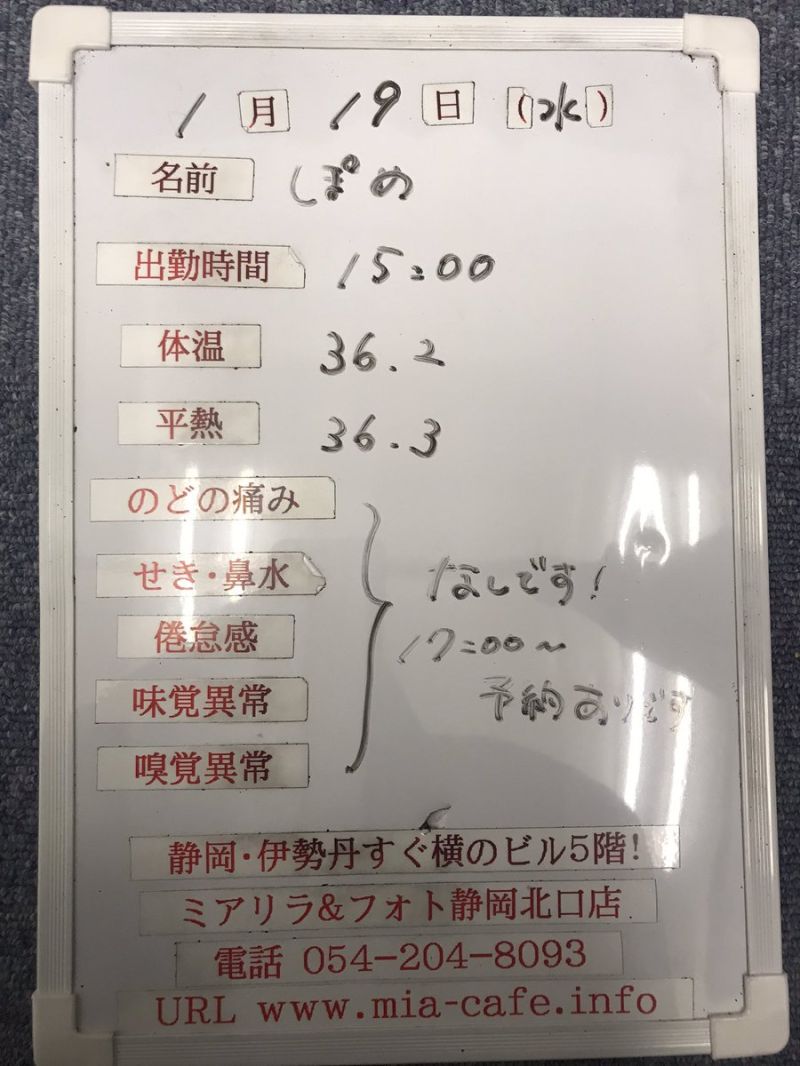 1月19日(水)
名前 ぽめ
出勤時間 15:00
体温 36.2
平熱 36.3
のどの痛み
せき・鼻水 なしです!
倦怠感 17:00〜
味覚異常 予約ありです
嗅覚異常
静岡・伊勢丹すぐ横のビル5階!
ミアリラ&フォト静岡北口店
電話 054-204-8093
URL www.mia-cafe.info